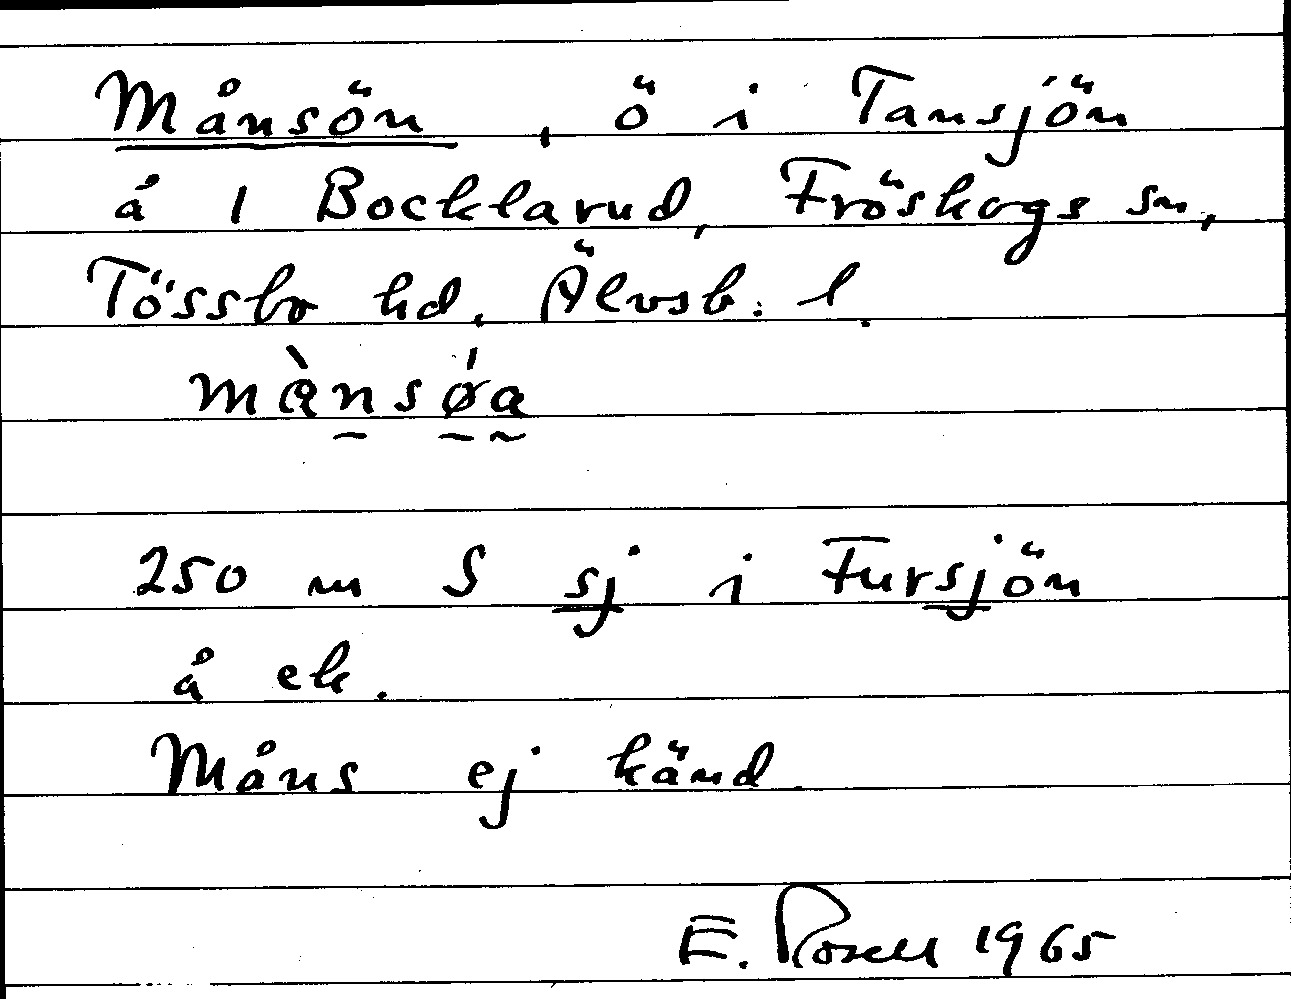 Månsön, ö i Tansjön
å 1 Bocklarud, Fröskogs sn,
Tössbo hd. Älvsb. l.
mànsǿa
250 m S sj i Fursjön
å ek.
Måns ej känd
E. Rosell 1965